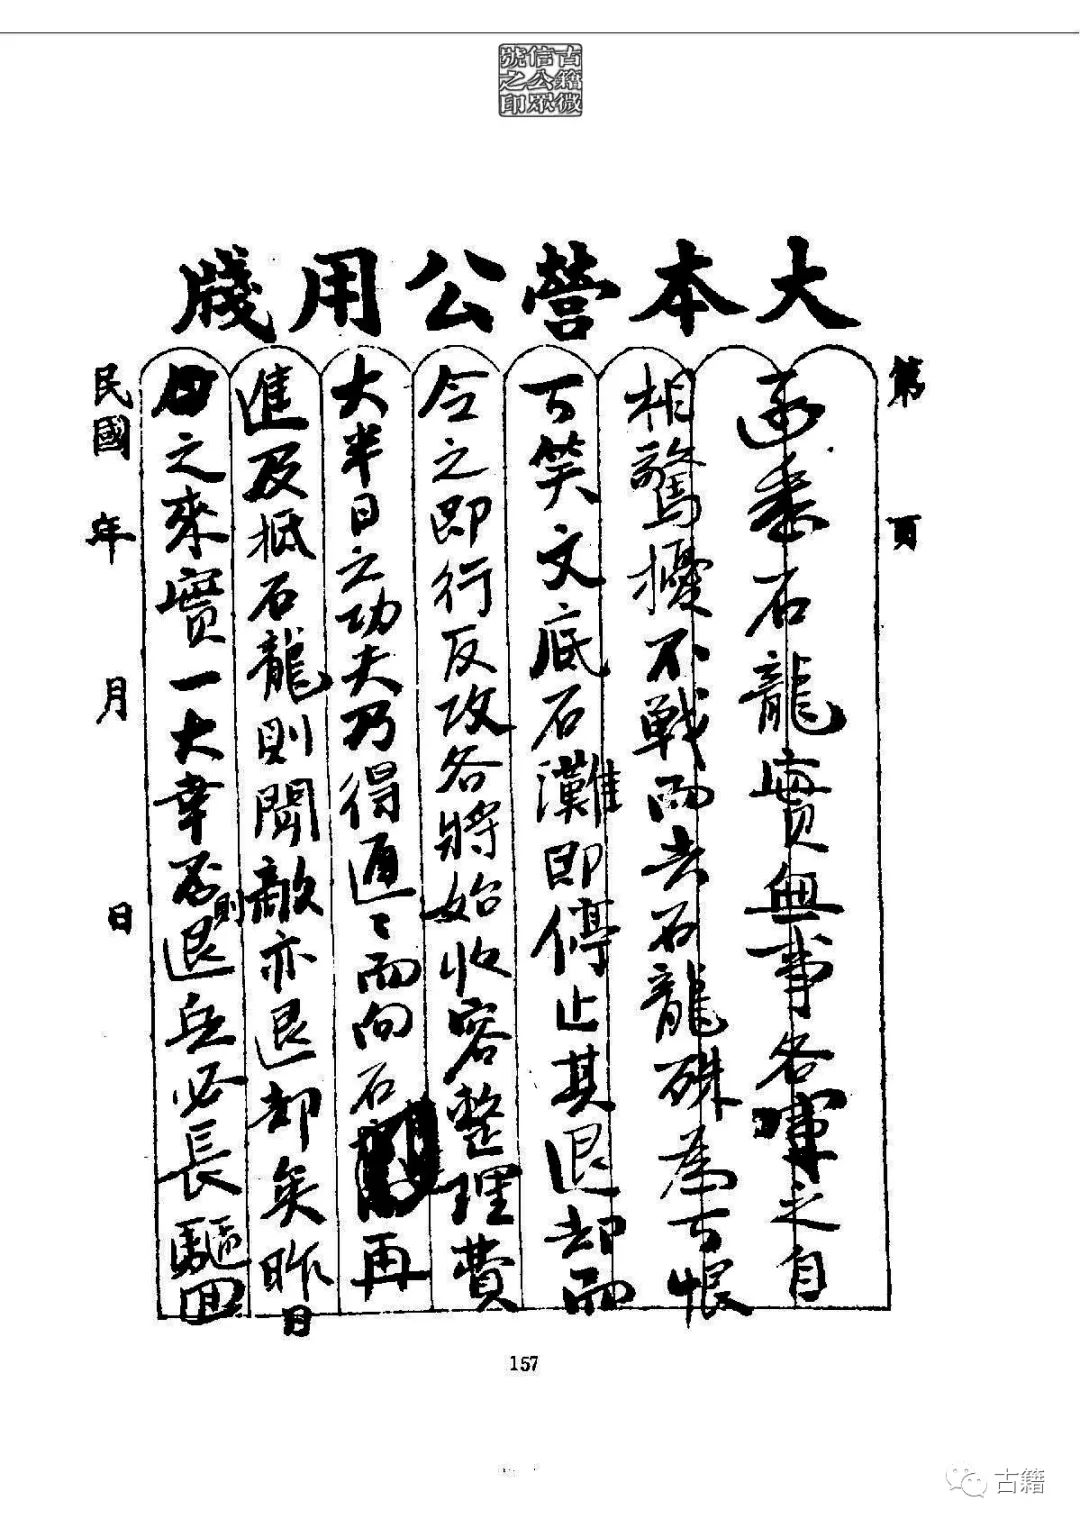 古籍微
信公眾
號之印
大本營公用牋
第 頁
迺悉石龍實無事各軍之自
相驚擾不戰而去石龍殊為可恨
可笑文底石灘即停止其退却而
令之即行反攻各將始收容整理費
大半日之功夫乃得通〻而向石再
進及抵石龍則聞敵亦退却矣昨日
之來實一大幸否則退兵必長驅回
民國 年 月 日
157
古籍